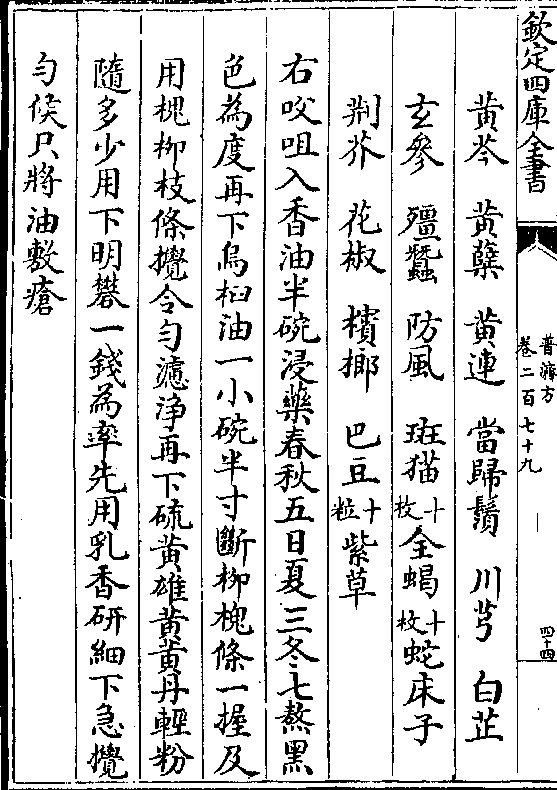 欽定四庫全書
普濟方
卷二百七十九
四十四
黄芩　黄蘗　黄連　當歸鬚　川芎　白芷
玄參　殭蠶　防風　斑猫十枚　全蝎十枚　蛇床子
荆芥　花椒　檳榔　巴豆十粒　紫草
右㕮咀入香油半碗浸藥春秋五日夏三冬七熬黑
色為度再下烏桕油一小碗半寸斷柳槐條一握及
用槐柳枝條攪令匀濾浄再下硫黄雄黄黄丹輕粉
隨多少用下明礬一錢為率先用乳香研細下急攪
匀候只將油敷瘡